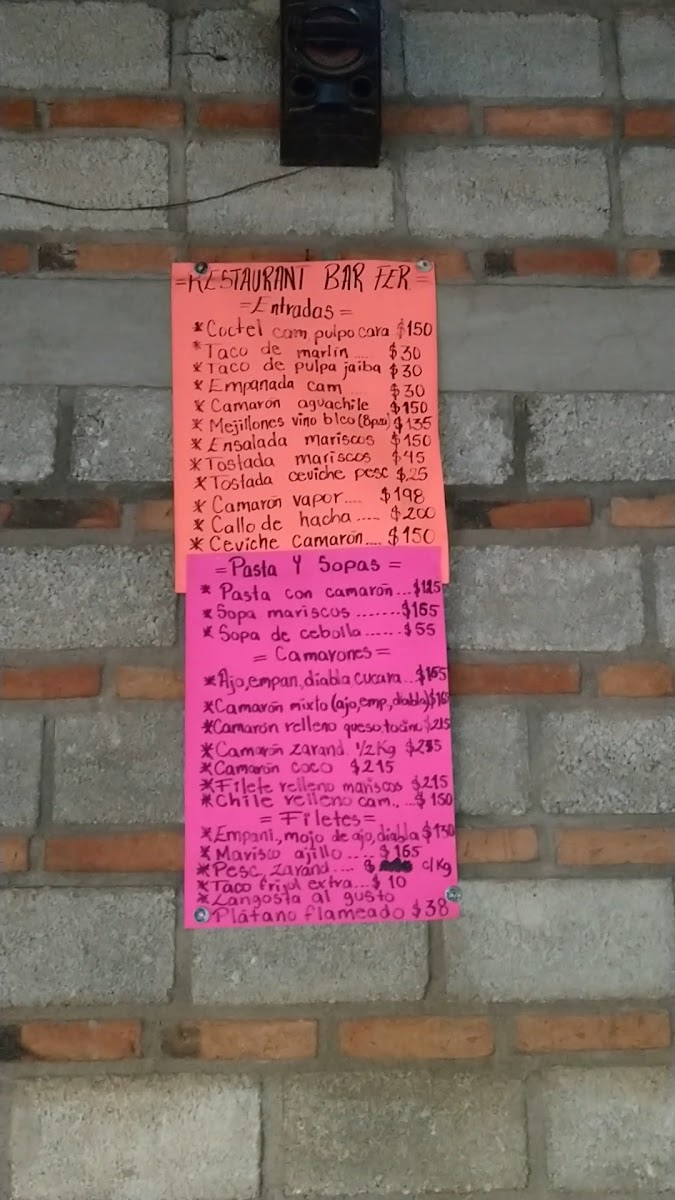 =RESTAURANT BAR FER=
=Entradas=
*Coctel cam, pulpo cara $150
*Taco de marlin .... $30
*Taco de pulpa jaiba $30
*Empanada cam.... $30
*Camarón aguachile $150
*Mejillones vino blco (8pzas) $135
*Ensalada mariscos $150
*Tostada mariscos $45
*Tostada ceviche pesc $25
*Camarón vapor.... $198
*Callo de hacha .... $200
*Ceviche camarón.... $150
=Pasta Y Sopas=
*Pasta con camarón...$125
*Sopa mariscos .......$165
*Sopa de cebolla......$55
=Camarones=
*Ajo,empan,diabla cucara...$165
*Camarón mixto (ajo,emp,diabla)
*Camarón relleno queso,tocino $215
*Camarón zarand. 1/2 Kg
*Camarón coco $215
*Filete relleno mariscos $215
*Chile relleno cam.. ..$ 150
=Filetes=
*Empani., mojo de ajo,diabla
*Marisco ajillo .... $165
*Pesc, zarand.... $ c/Kg
*Taco frijol extra...$ 10
*Langosta al gusto
*Plátano flameado $38